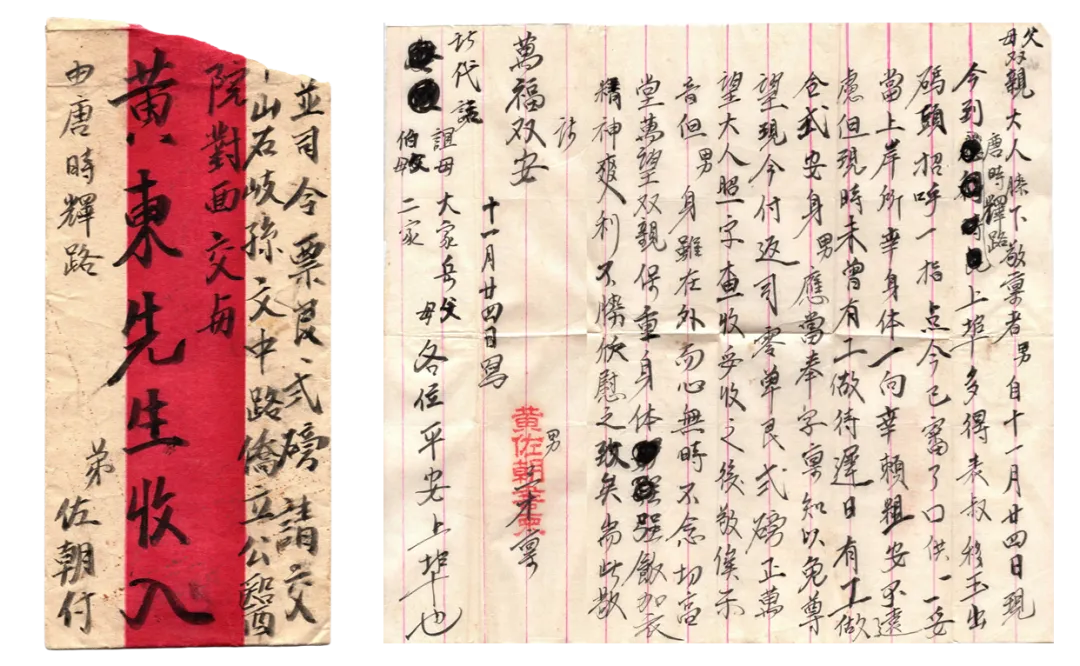 並司令票艮弍磅請交
山石岐孫文中路僑立公醫
院對面交与
黃東先生收入
弟佐朝付
由唐時輝路
父母双親大人膝下敬禀者男自十一月廿四日現
今到唐時輝路上埠多得表叔移玉出
碼頭招呼一指点今已審了口供一妥
當上岸所幸身体一向幸賴粗安不遠
慮但現時未曾有工做待遲日有工做
合式安身男應當奉字禀知以免尊
望現今付返司零单艮弍磅正萬
望大人照字查收妥收之後敬候示
音但男身雖在外而心無時不念切高
堂萬望双親保重身体强飯加衣
精神爽利不勝欣慰之致矣耑此敬
請
萬福双安
男禀
黃佐朝
十一月廿四日寫
祈代
誼母大家岳父母各位平安上埠也
伯父母二家